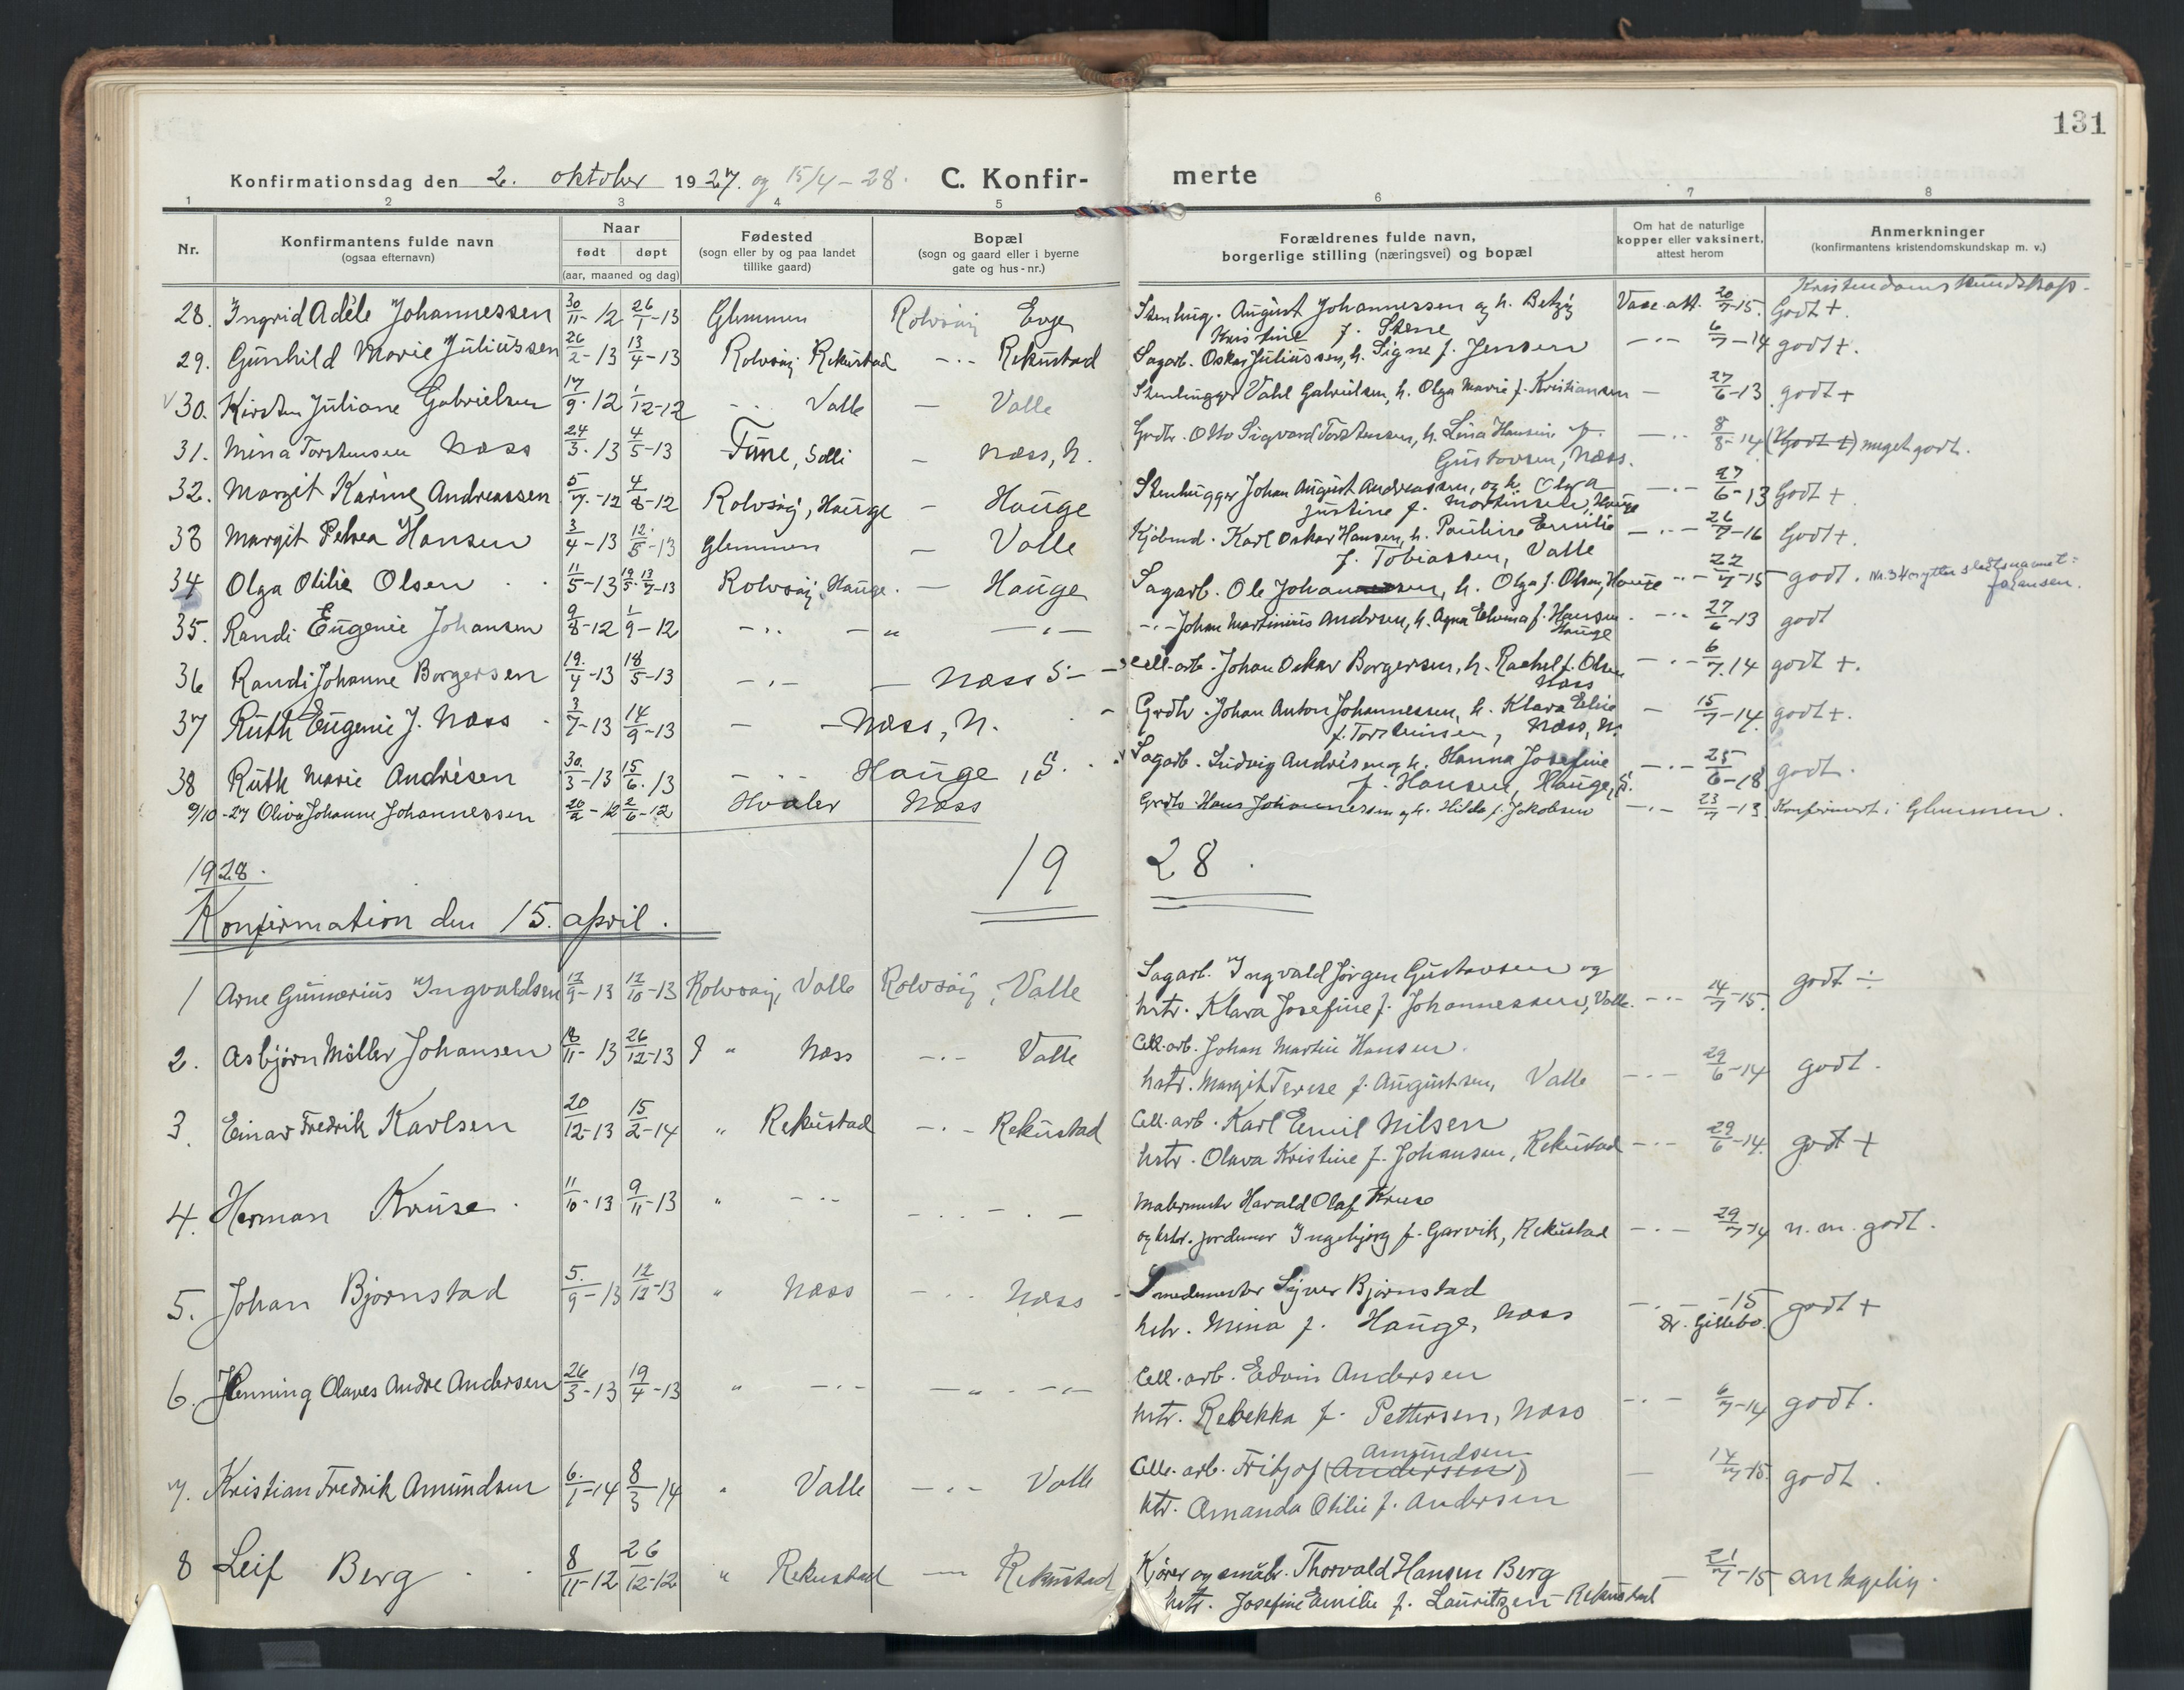 131
Konfirmationsdag den 2. oktober 1927. og 15/4-28. C. Konfir- merte
1 2 3 4 5 6 7 8
Nr. Konfirmantens fulde navn (ogsaa efternavn) Naar født døpt (aar, maaned og dag) Fødested (sogn eller by og paa landet tillike gaard) Bopæl (sogn og gaard eller i byerne gate og hus-nr.) Forældrenes fulde navn, borgerlige stilling (næringsvei) og bopæl Om hat de naturlige kopper eller vaksinert, attest herom Anmerkninger (konfirmantens kristendomskundskap m. v.)
Kristendomskundskap.
28. Ingrid Adéle Johannessen 30/11-12 26/1-13 Glemmen Rolvsøy Evje Stenhug. August Johannessen og h. Betzy Vacc. att. 20/7-15. Godt +.
Kristine f. Stene
29. Gunhild Marie Juliussen 26/2-13 13/4-13 Rolvsøy Rekustad -"- Rekustad Sagarb. Oskar Juliussen, h. Signe f. Jensen -"- 6/7-14 godt +.
30. Kirsten Juliane Gabrielsen 17/9-12 1/12-12 -"- Valle - Valle Stenhugger Vahl Gabrielsen, h. Olga Marie f. Kristiansen - 27/6-13 godt +
31. Mina Torstensen Næss 24/3-13 4/5-13 Tune, Solli - Næss, N. Grdbr. Otto Sigvard Torstensen, h. Lina Hansine f. -"- 8/8-14 (Godt +) meget godt.
Gustavsen, Næss.
32. Margit Karine Andreassen 5/7-12 4/8-12 Rolvsøy, Hauge - Hauge Stenhugger Johan August Andreassen, og h. Olava -"- 27/6-13 Godt +
Justine f. Martinsen, Hauge
33 Margit Petrea Hansen 3/4-13 12/5-13 Glemmen - Valle Kjøbmd. Karl Oskar Hansen, h. Pauline Emilie -"- 26/7-16 Godt +.
f. Tobiassen, Valle
34 Olga Otilie Olsen 11/5-13 13/7-13 Rolvsøy, Hauge. - Hauge Sagarb. Ole Johansen, h. Olga f. Olsen, Hauge -"- 22/7-15 godt. Nr. 34 nytter slektsnavnet: Johansen.
35. Randi Eugenie Johansen 9/8-12 1/9-12 -"- -"- -"- -"- Johan Martinius Andersen, h. Agna Elvina f. Hansen -"- 27/6-13 godt
Hauge
36 Randi Johanne Borgersen 19/4-13 18/5-13 -"- - Næss S. - Cell.-arb. Johan Oskar Borgersen, h. Rachel f. Olsen -"- 6/7.14 godt +.
Næss
37 Ruth Eugenie J. Næss 3/7-13 14/9-13 - - Næss, N. Grdbr. Johan Anton Johannessen, h. Klara Elise - 15/7-14. godt +.
f. Torsteinsen, Næss, N.
38 Ruth Marie Andrésen 30/3-13 15/6.13 -"- Hauge, S. Sagarb. Ludvig Andrésen og h. Hanna Josefine -"- 25/6-18 godt.
f. Hansen, Hauge, S.
9/10-27 Oliva Johanne Johannessen 20/2-12 2/6-12 Hvaler Næss Grdb. Hans Johannessen og h. Hilda f. Jakobsen -"- 23/7-13 Konfirmert i Glemmen.
1928. 19 28.
Konfirmation den 15. april.
1 Arne Gunnerius Ingvaldsen 12/9-13 12/10-13 Rolvsøy, Valle Rolvsøy, Valle Sagarb. Ingvald Jørgen Gustavsen og
hstr. Klara Josefine f. Johannessen, Valle. -"- 14/7-15. godt ÷
2. Asbjørn Møller Johansen 18/11-13 26/12-13 " Næss -"- Valle Cell.-arb. Johan Martin Hansen.
hstr. Margit Terese f. Augustsen, Valle -"- 29/6-14 godt.
3. Einar Fredrik Karlsen 20/12-13 15/2-14 " Rekustad -"- Rekustad Cell.-arb. Karl Emil Nilsen
hstr. Olava Kristine f. Johansen, Rekustad -"- 29/6-14. godt +
4. Herman Kruse 11/10-13 9/11-13 " -"- -"- -"- Malermester Harald Olaf Kruse
og hstr. jordmor Ingebjørg f. Garvik, Rekustad -"- 29/7-14 n. m. godt.
5. Johan Bjørnstad 5/9-13 12/12-13 " Næss -"- Næss Smedemester Sigver Bjørnstad
hstr. Mina f. Hauge, Næss -"- -15 Dr. Gillebo. godt +
6. Henning Olaves Andre Andersen 26/3-13 19/4-13 " -"- -"- -"- Cell.-arb. Edvin Andersen
hstr. Rebekka f. Pettersen, Næss -"- 6/7-14 godt.
7. Kristian Fredrik Amundsen 6/1-14 8/3 14 " Valle -"- Valle Cell.-arb. Fritjof (Andersen) Amundsen
hstr. Amanda Otilie f. Andersen - 14/7-15. godt.
8 Leif Berg 8/11-12 26/12-12 " Rekustad - Rekustad Kjører og småbr. Thorvald Hansen Berg
hstr. Josefine Emilie f. Lauritzen - Rekustad - 21/7-15 antagelig.